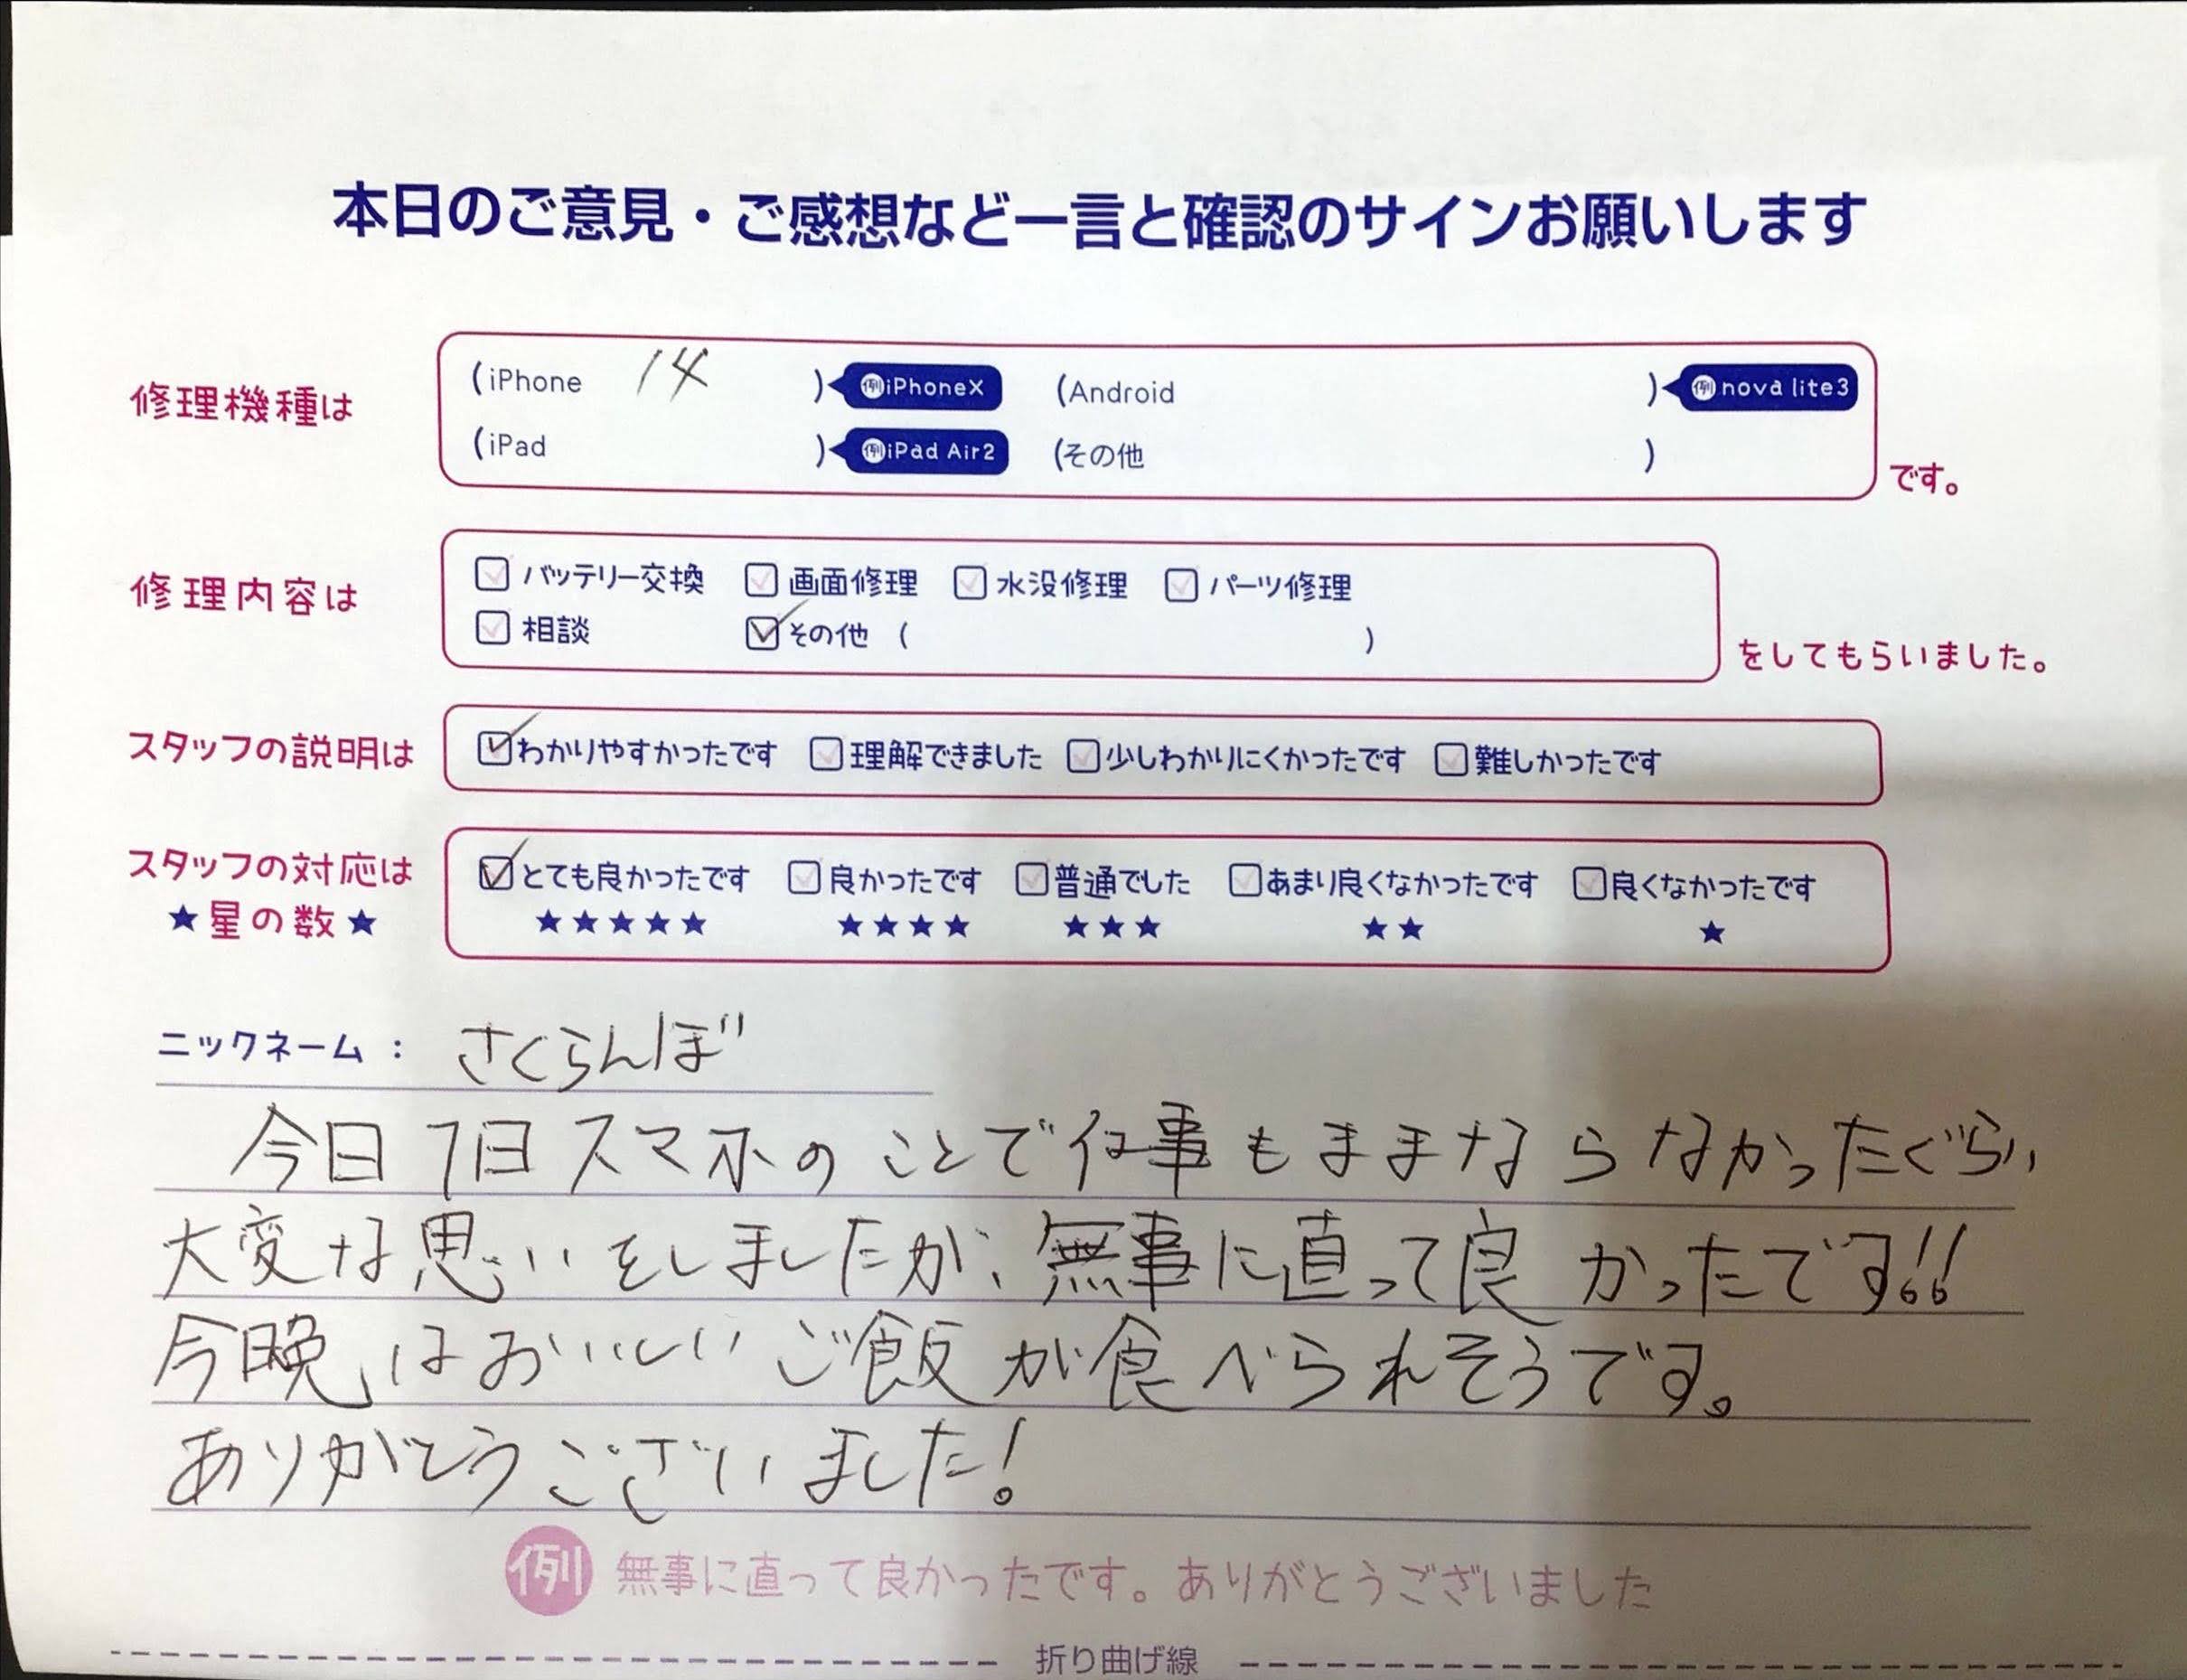 本日のご意見・ご感想など一言と確認のサインお願いします
修理機種は
(iPhone 14 ) 例iPhoneX (Android ) 例nova lite3
(iPad ) 例iPad Air2 (その他 )
です。
修理内容は
バッテリー交換 画面修理 水没修理 パーツ修理
相談 その他 ( )
をしてもらいました。
スタッフの説明は
わかりやすかったです 理解できました 少しわかりにくかったです 難しかったです
スタッフの対応は
★星の数★
とても良かったです 良かったです 普通でした あまり良くなかったです 良くなかったです
★★★★★ ★★★★ ★★★ ★★ ★
ニックネーム : さくらんぼ
今日1日スマホのことで仕事もままならなかったぐらい
大変な思いをしましたが、無事に直って良かったです!!
今晩はおいしいご飯が食べられそうです。
ありがとうございました!
例 無事に直って良かったです。ありがとうございました
折り曲げ線